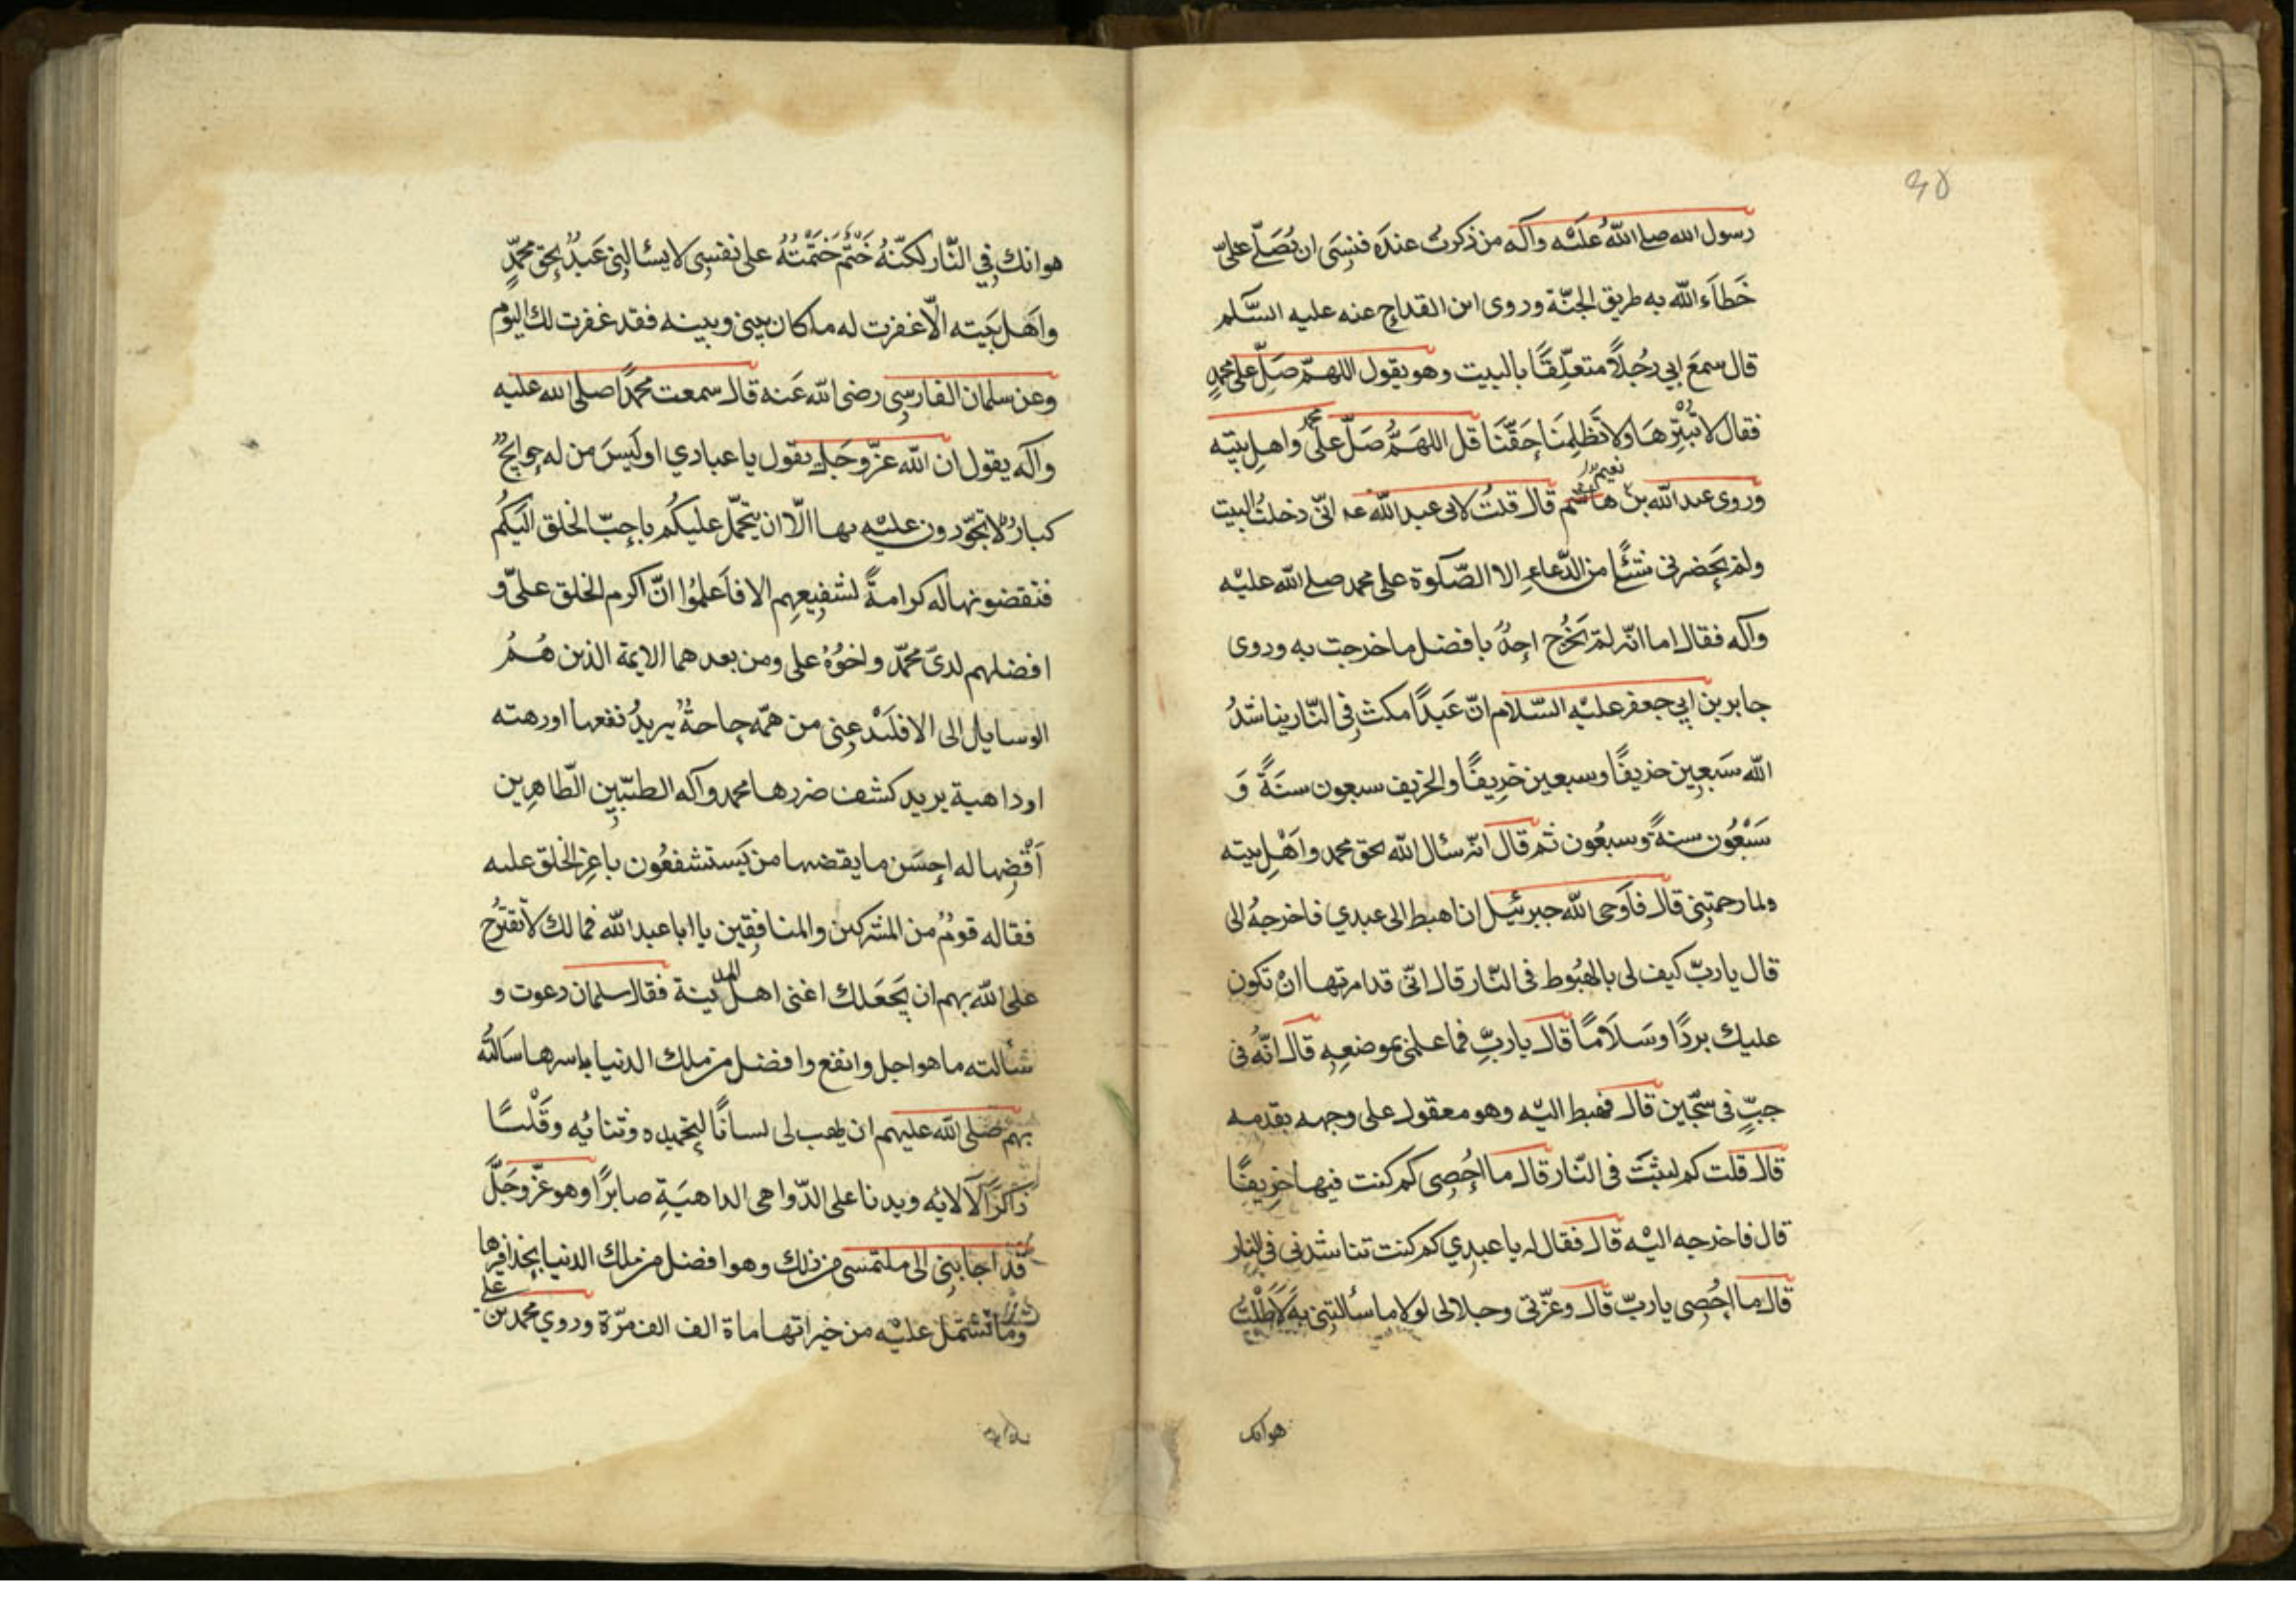 ٤٥
رسول الله صلى الله عليه وآله من ذكرت عنده فنسى ان يُصَلّى علىّ
خَطَأَ الله به طريق الجنّة وروى ابن القداح عنه عليه السّلم
قال سمعَ ابي رجُلاً متعلّقًا بالبيت وهو يقول اللهمّ صَلّ على محمدٍ
فقال لا تبترها ولا تظلِمنا حقّنا قل اللهمّ صَلّ على محمد واهل بيته
وروى عبد الله بن نعيم قال قلتُ لابى عبد الله عه انّى دخلتُ البيت
ولم يَحضرنى شئًا من الدّعاءِ الا الصّلوة على محمد صلى الله عليه
وآله فقال اما انّه لم يَخرُج احدٌ بافضل ما خرجت به وروى
جابر بن ابي جعفر عليه السّلام انّ عَبدًا مكث في النّار يناشدُ
الله سَبعين خريفًا وسبعين خريفًا والخريف سبعون سنَةً وَ
سَبْعُون سنةً وسبعُون ثم قال انّه سئال الله بحق محمد واَهْل بيته
ولما رحمتنى قال فاَوحى الله جبرئيل ان اهبط الى عبدي فاخرجهُ الى
قال ياربّ كيف لى بالهبُوط فى النّار قال انّى قد امرتها انْ تكون
عليك بردًا وسَلَامًا قال ياربِّ فما علمنى بموضعِهِ قال انّه فى
جبٍّ فى سجّين قال فهبط اليه وهو معقول على وجهه بقدمه
قال قلت كم لبثتَ فى النّار قال ما اُحصِى كم كنت فيها خريفًا
قال فاخرجه اليْه قال فقال له يا عبدِي كم كنت تناشدنى فى النار
قال ما اُحصِى ياربّ قال وعزّتى وجلالى لولا ما سألتنى به لَاَطَلْتُ
هوانك
هوانك فِي النّار لكنّهُ حَتْمٌ حَتَمْتُهُ على نفسِى لا يسئالنِى عَبدٌ بحق محمّدٍ
واَهَل بَيته الّا غفرت له ما كان بينى وبينه فقد غفرت لك اليوم
وعن سلمان الفارسِى رضى الله عَنه قال سمعت محمّدًا صلى الله عليه
وآله يقول ان الله عزّ وجَل يقول يا عبادي اوليسَ من له حوايجٌ
كبارٌ لا تجوّدون عليْه بها الّا ان يتحمّل عليكُم باحبّ الخلق اليكُم
فتقضونها له كرامةً لشفيعِهم الا فاَعلمُوا انّ اكرم الخلق علىّ و
افضلهم لدىّ محمّد واخوُهُ على ومن بعدهما الايمة الذين هُمُ
الوسايل الى الا فليَدْعنِى من همّه حاجةٌ يريدُ نفعها اورهته
اوداهية يريد كشف ضررها محمد وآله الطيّبين الّطاهِرين
اَقْضِها له احسَن ما يقضها من يَستشفعُون باعزِ الخلق عليه
فقاله قومٌ من المشركين والمنافقين يا ابا عبد الله فما لك لا تقترُح
على الله بهم ان يجعَلك اغنى اهل المدينة فقال سلمان دعوت و
سألته ما هو اجل وانفع وافضل من ملك الدنيا باسرها سَالتُه
بهم صلى الله عليهم ان يهب لى لسانًا لتحميده وثنائه وقَلْبًا
ذاكرًا لآلائه وبدنا على الدّواهى الداهيَةِ صابرًا وهو عزّ وجَلّ
قد اجابنِى الى ملتمسى من ذلك وهو افضل من ملك الدنيا بحذافِيرها
وما تشتمل عليْه من خيراتها ماة الف الف مرّة وروي محمد بن على